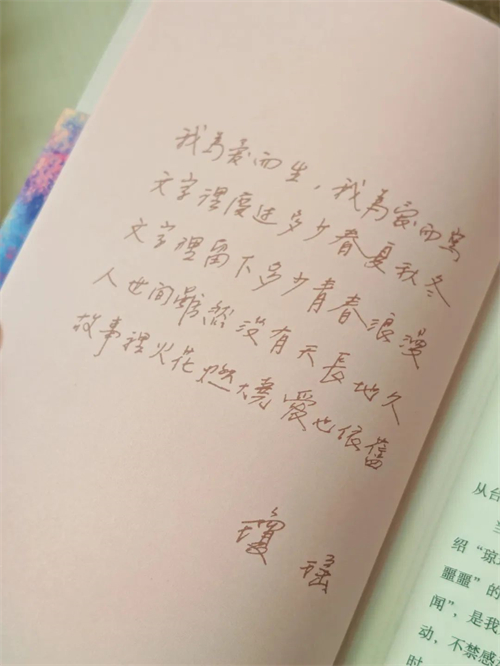 我為愛而生，我為愛而寫
文字裡度過多少春夏秋冬
文字裡留下多少青春浪漫
人世間雖然沒有天長地久
故事裡火花燃燒愛也依舊
瓊瑤
从台
绍“琼
噩噩”的
闻”，是我
动，不禁感
时